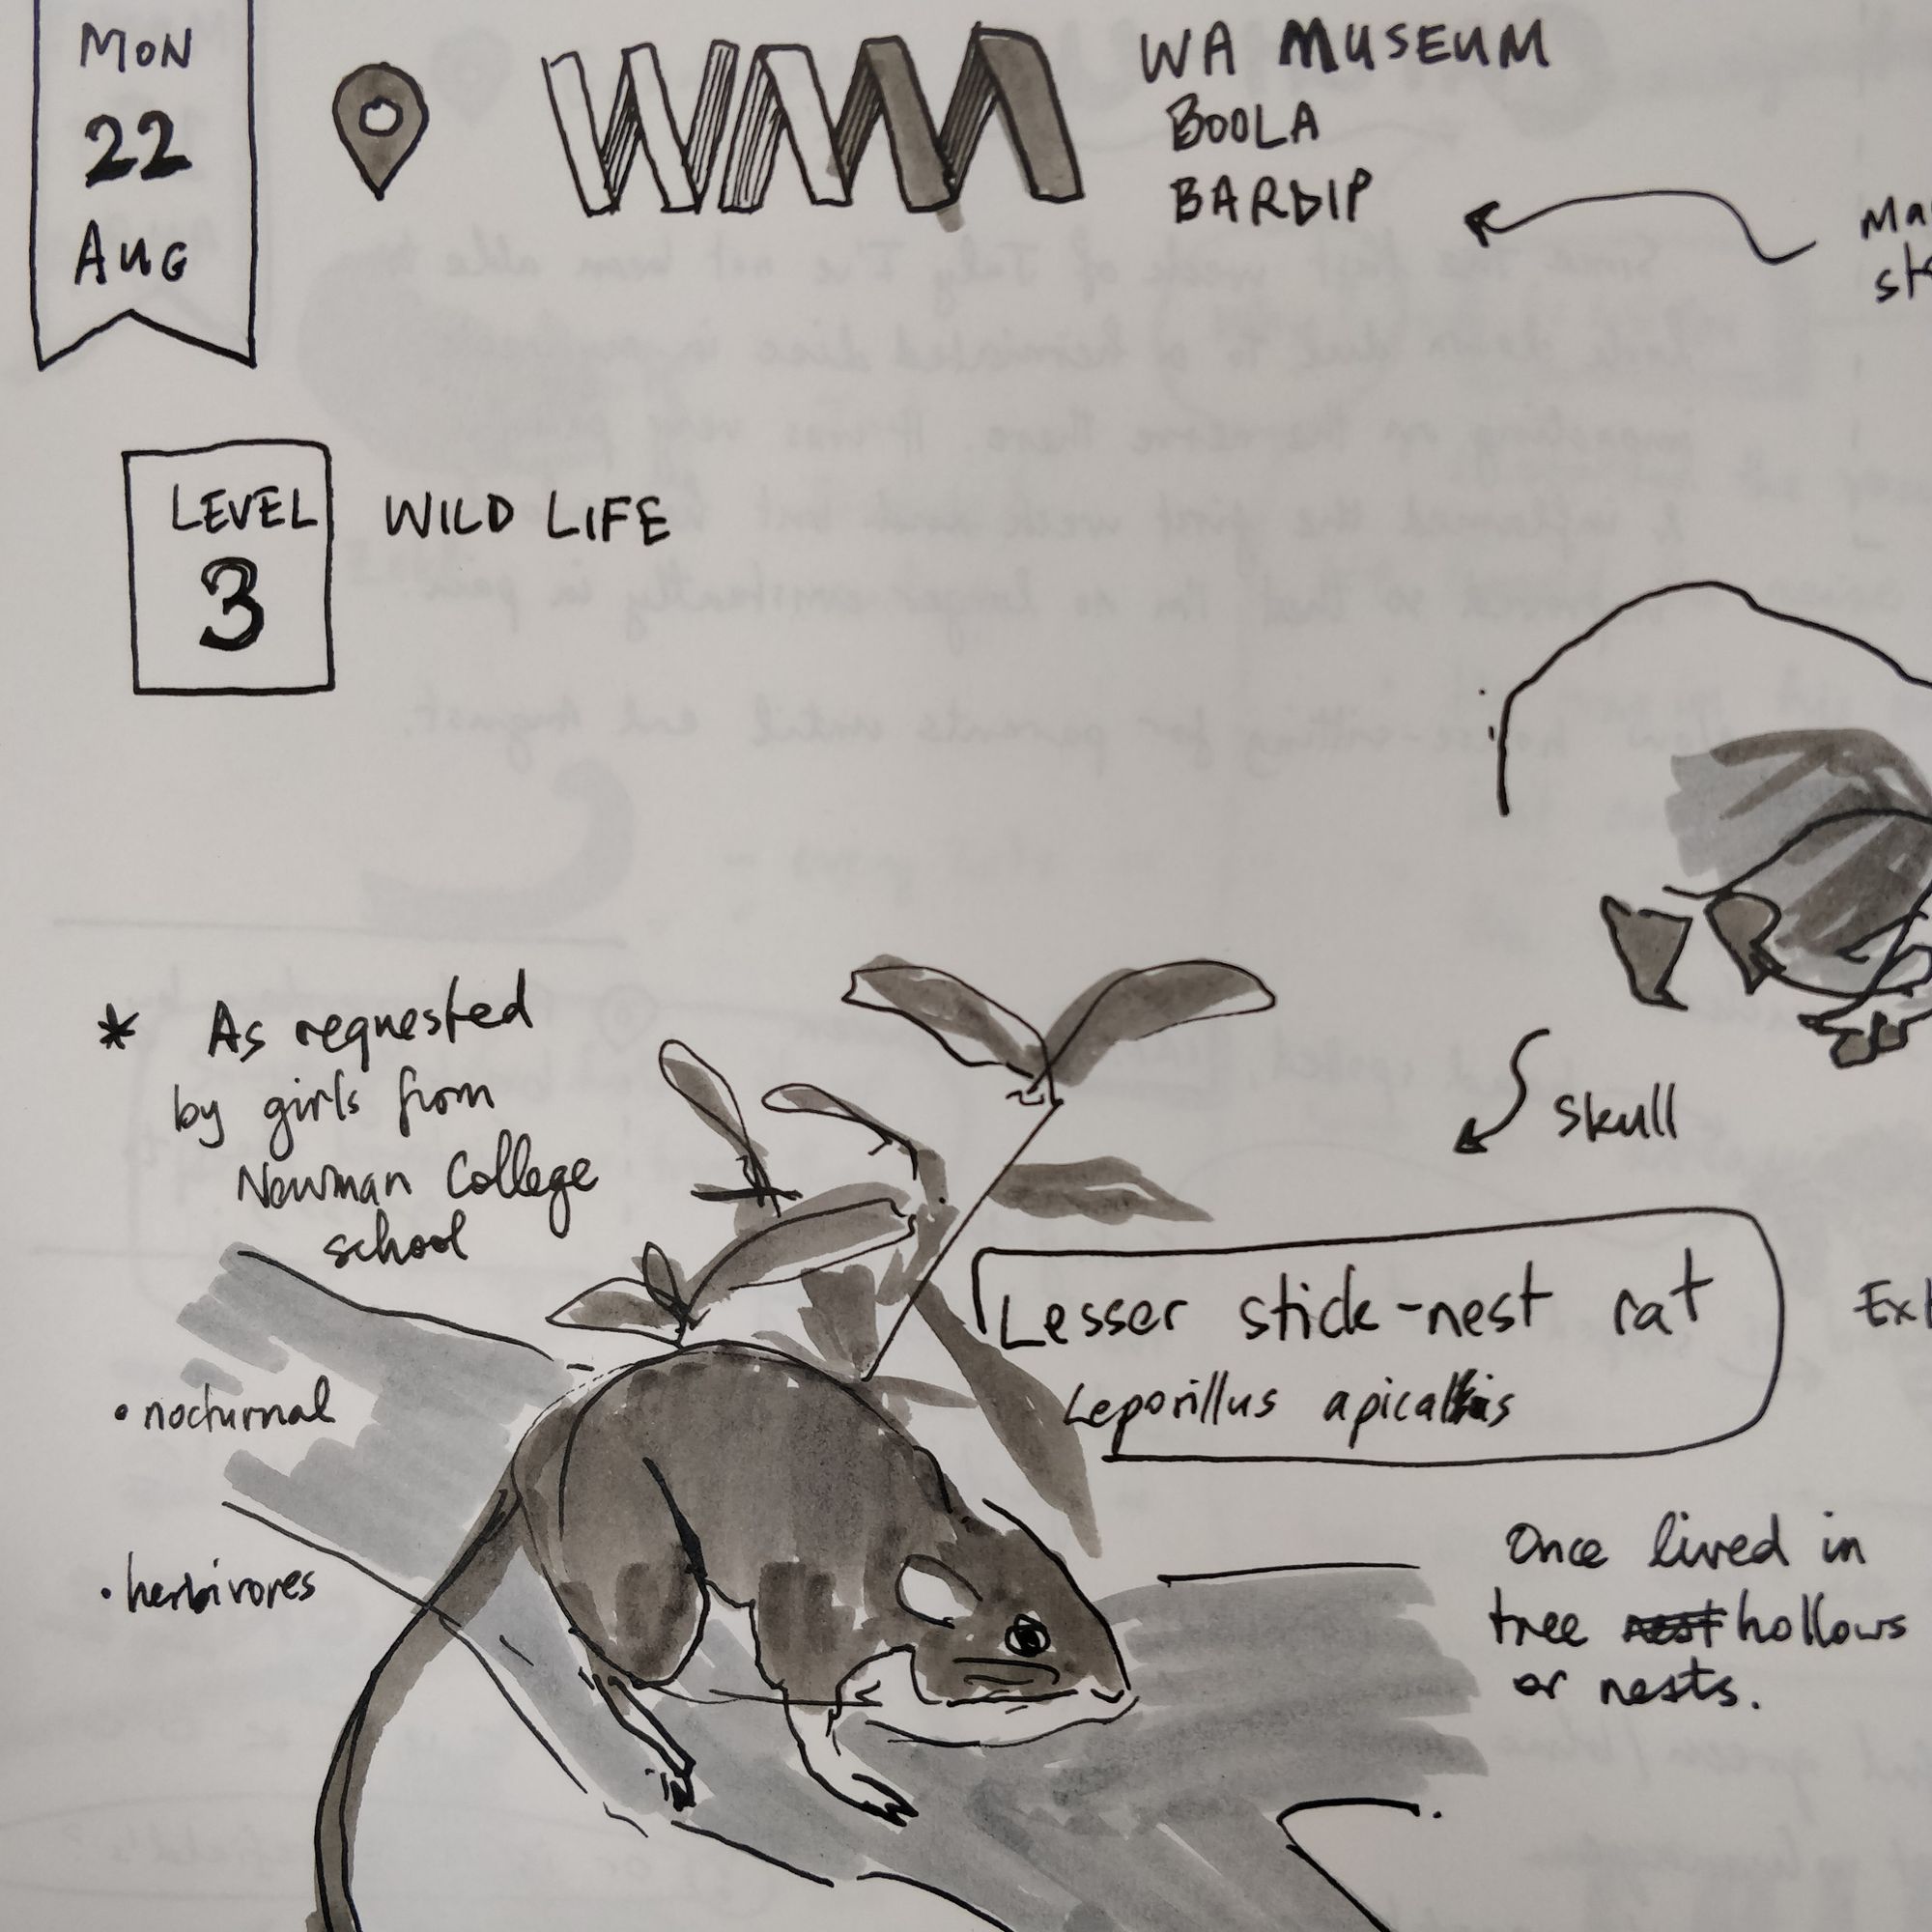 MON
22
AUG
WAM
WA MUSEUM
BOOLA
BARDIP
LEVEL
3
WILD LIFE
* As requested
by girls from
Newman College
school
skull
Lesser stick-nest rat
Leporillus apicalis
• nocturnal
• herbivores
Once lived in
tree hollows
or nests.